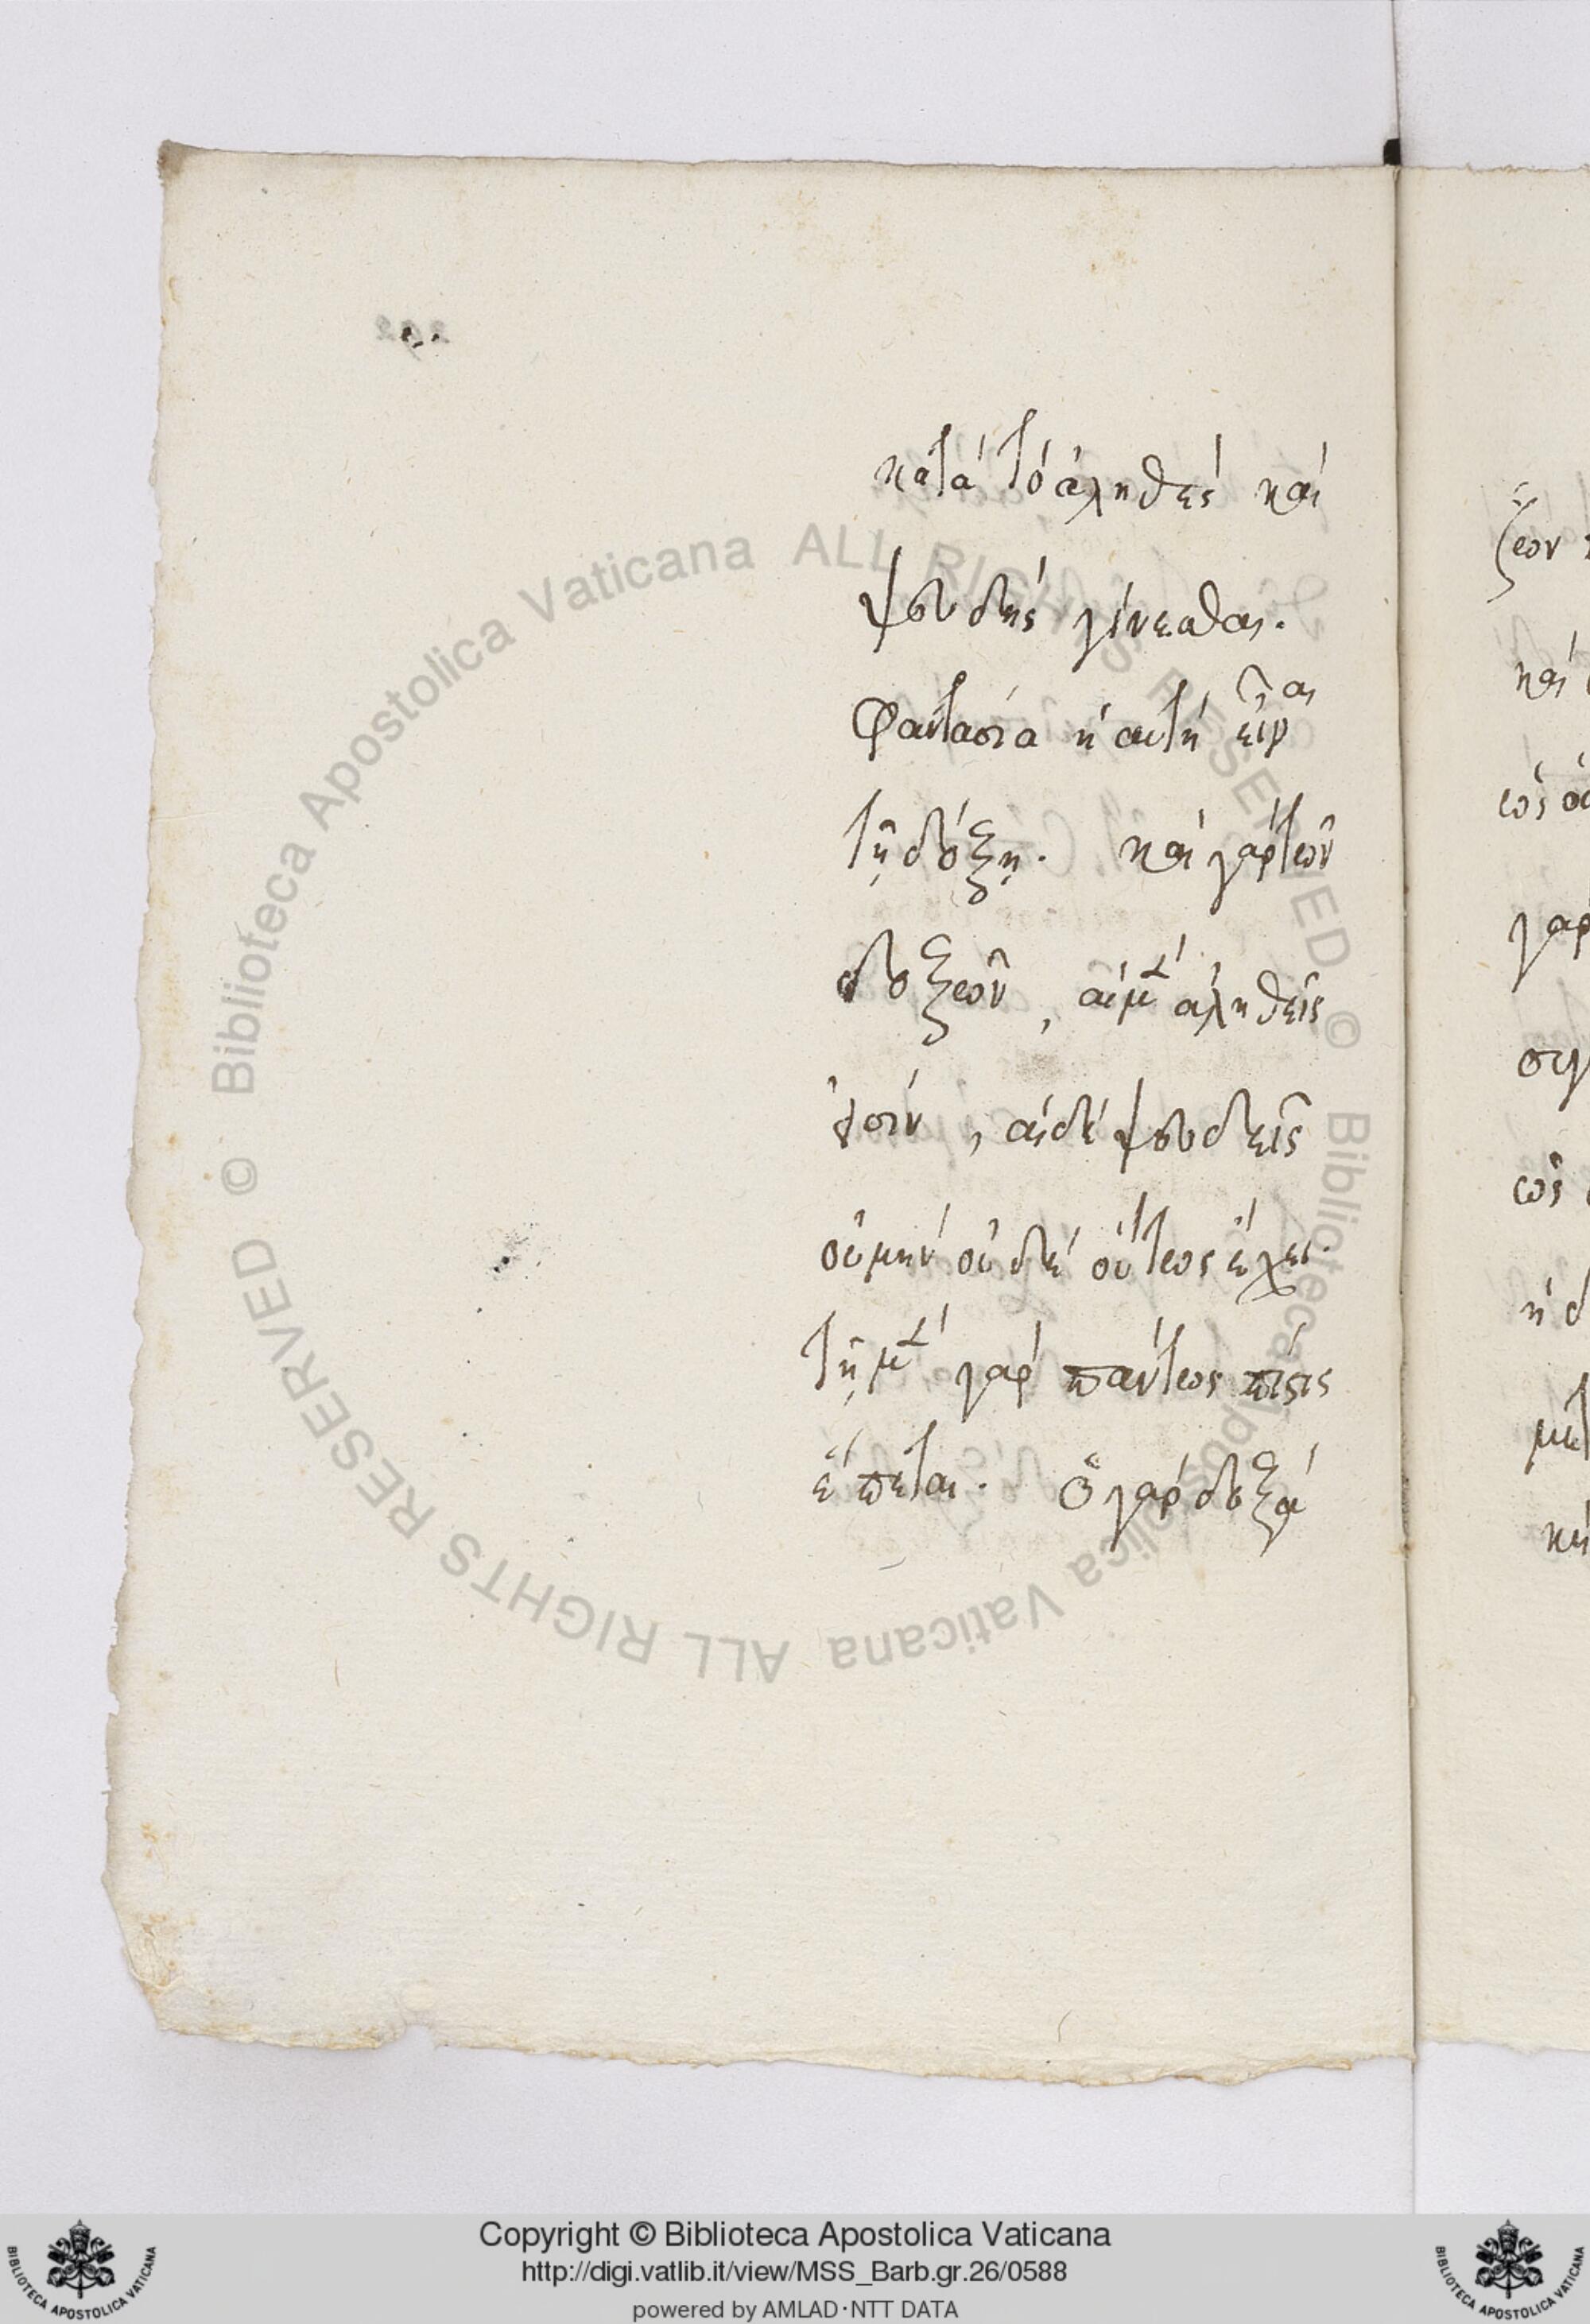 κατὰ τὸ ἀληθὲς καὶ
ψευδὴς γίνεσθαι.
Φαντασία ἡ αὐτὴ εἶναι
τῇ δόξῃ. καὶ γὰρ τῶν
δοξῶν, αἱ μὲν ἀληθεῖς
εἰσὶν, αἱ δὲ ψευδεῖς
οὐ μὴν οὐδὲ οὕτως ἔχει.
τῇ μὲν γὰρ πάντως πίστις
ἕπεται. ὁ γὰρ δοξά
Biblioteca Apostolica Vaticana ALL RIGHTS RESERVED ©
Biblioteca Apostolica Vaticana ALL RIGHTS RESERVED ©
Copyright © Biblioteca Apostolica Vaticana
http://digi.vatlib.it/view/MSS_Barb.gr.26/0588
powered by AMLAD·NTT DATA
BIBLIOTECA APOSTOLICA VATICANA
BIBLIOTECA APOSTOLICA VATICANA